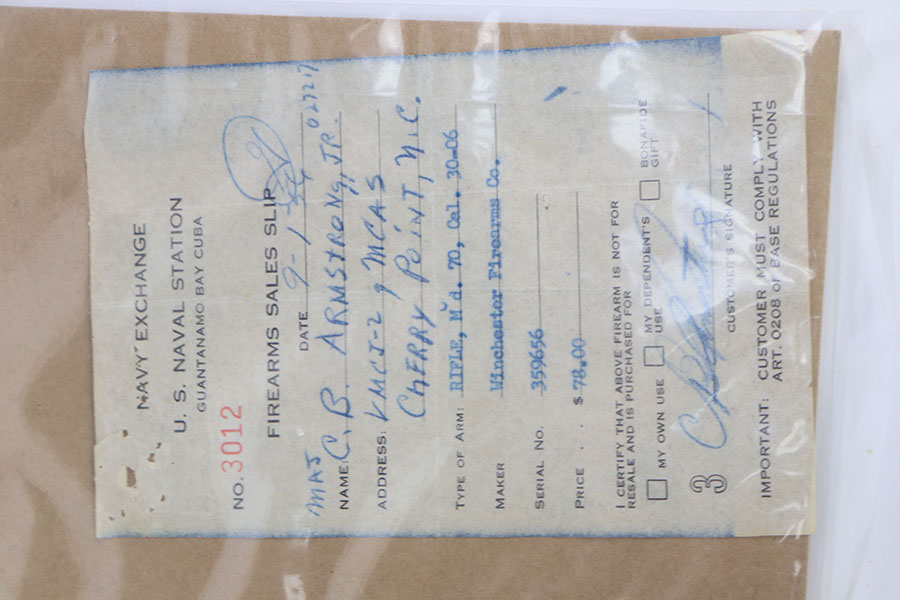 NAVY EXCHANGE
U. S. NAVAL STATION
GUANTANAMO BAY CUBA
NO. 3012
FIREARMS SALES SLIP
DATE 9-1 027217
MAJ
NAME: C. B. ARMSTRONG, JR.
ADDRESS: VMCJ-2, MCAS
CHERRY POINT, N.C.
TYPE OF ARM: RIFLE, Md. 70, Cal. 30-06
MAKER Winchester Firearms Co.
SERIAL NO. 359656
PRICE . . $ 78.00
I CERTIFY THAT ABOVE FIREARM IS NOT FOR
RESALE AND IS PURCHASED FOR
MY OWN USE MY DEPENDENT'S USE BONAFIDE GIFT
3
CUSTOMER'S SIGNATURE
IMPORTANT: CUSTOMER MUST COMPLY WITH
ART. 0208 OF BASE REGULATIONS